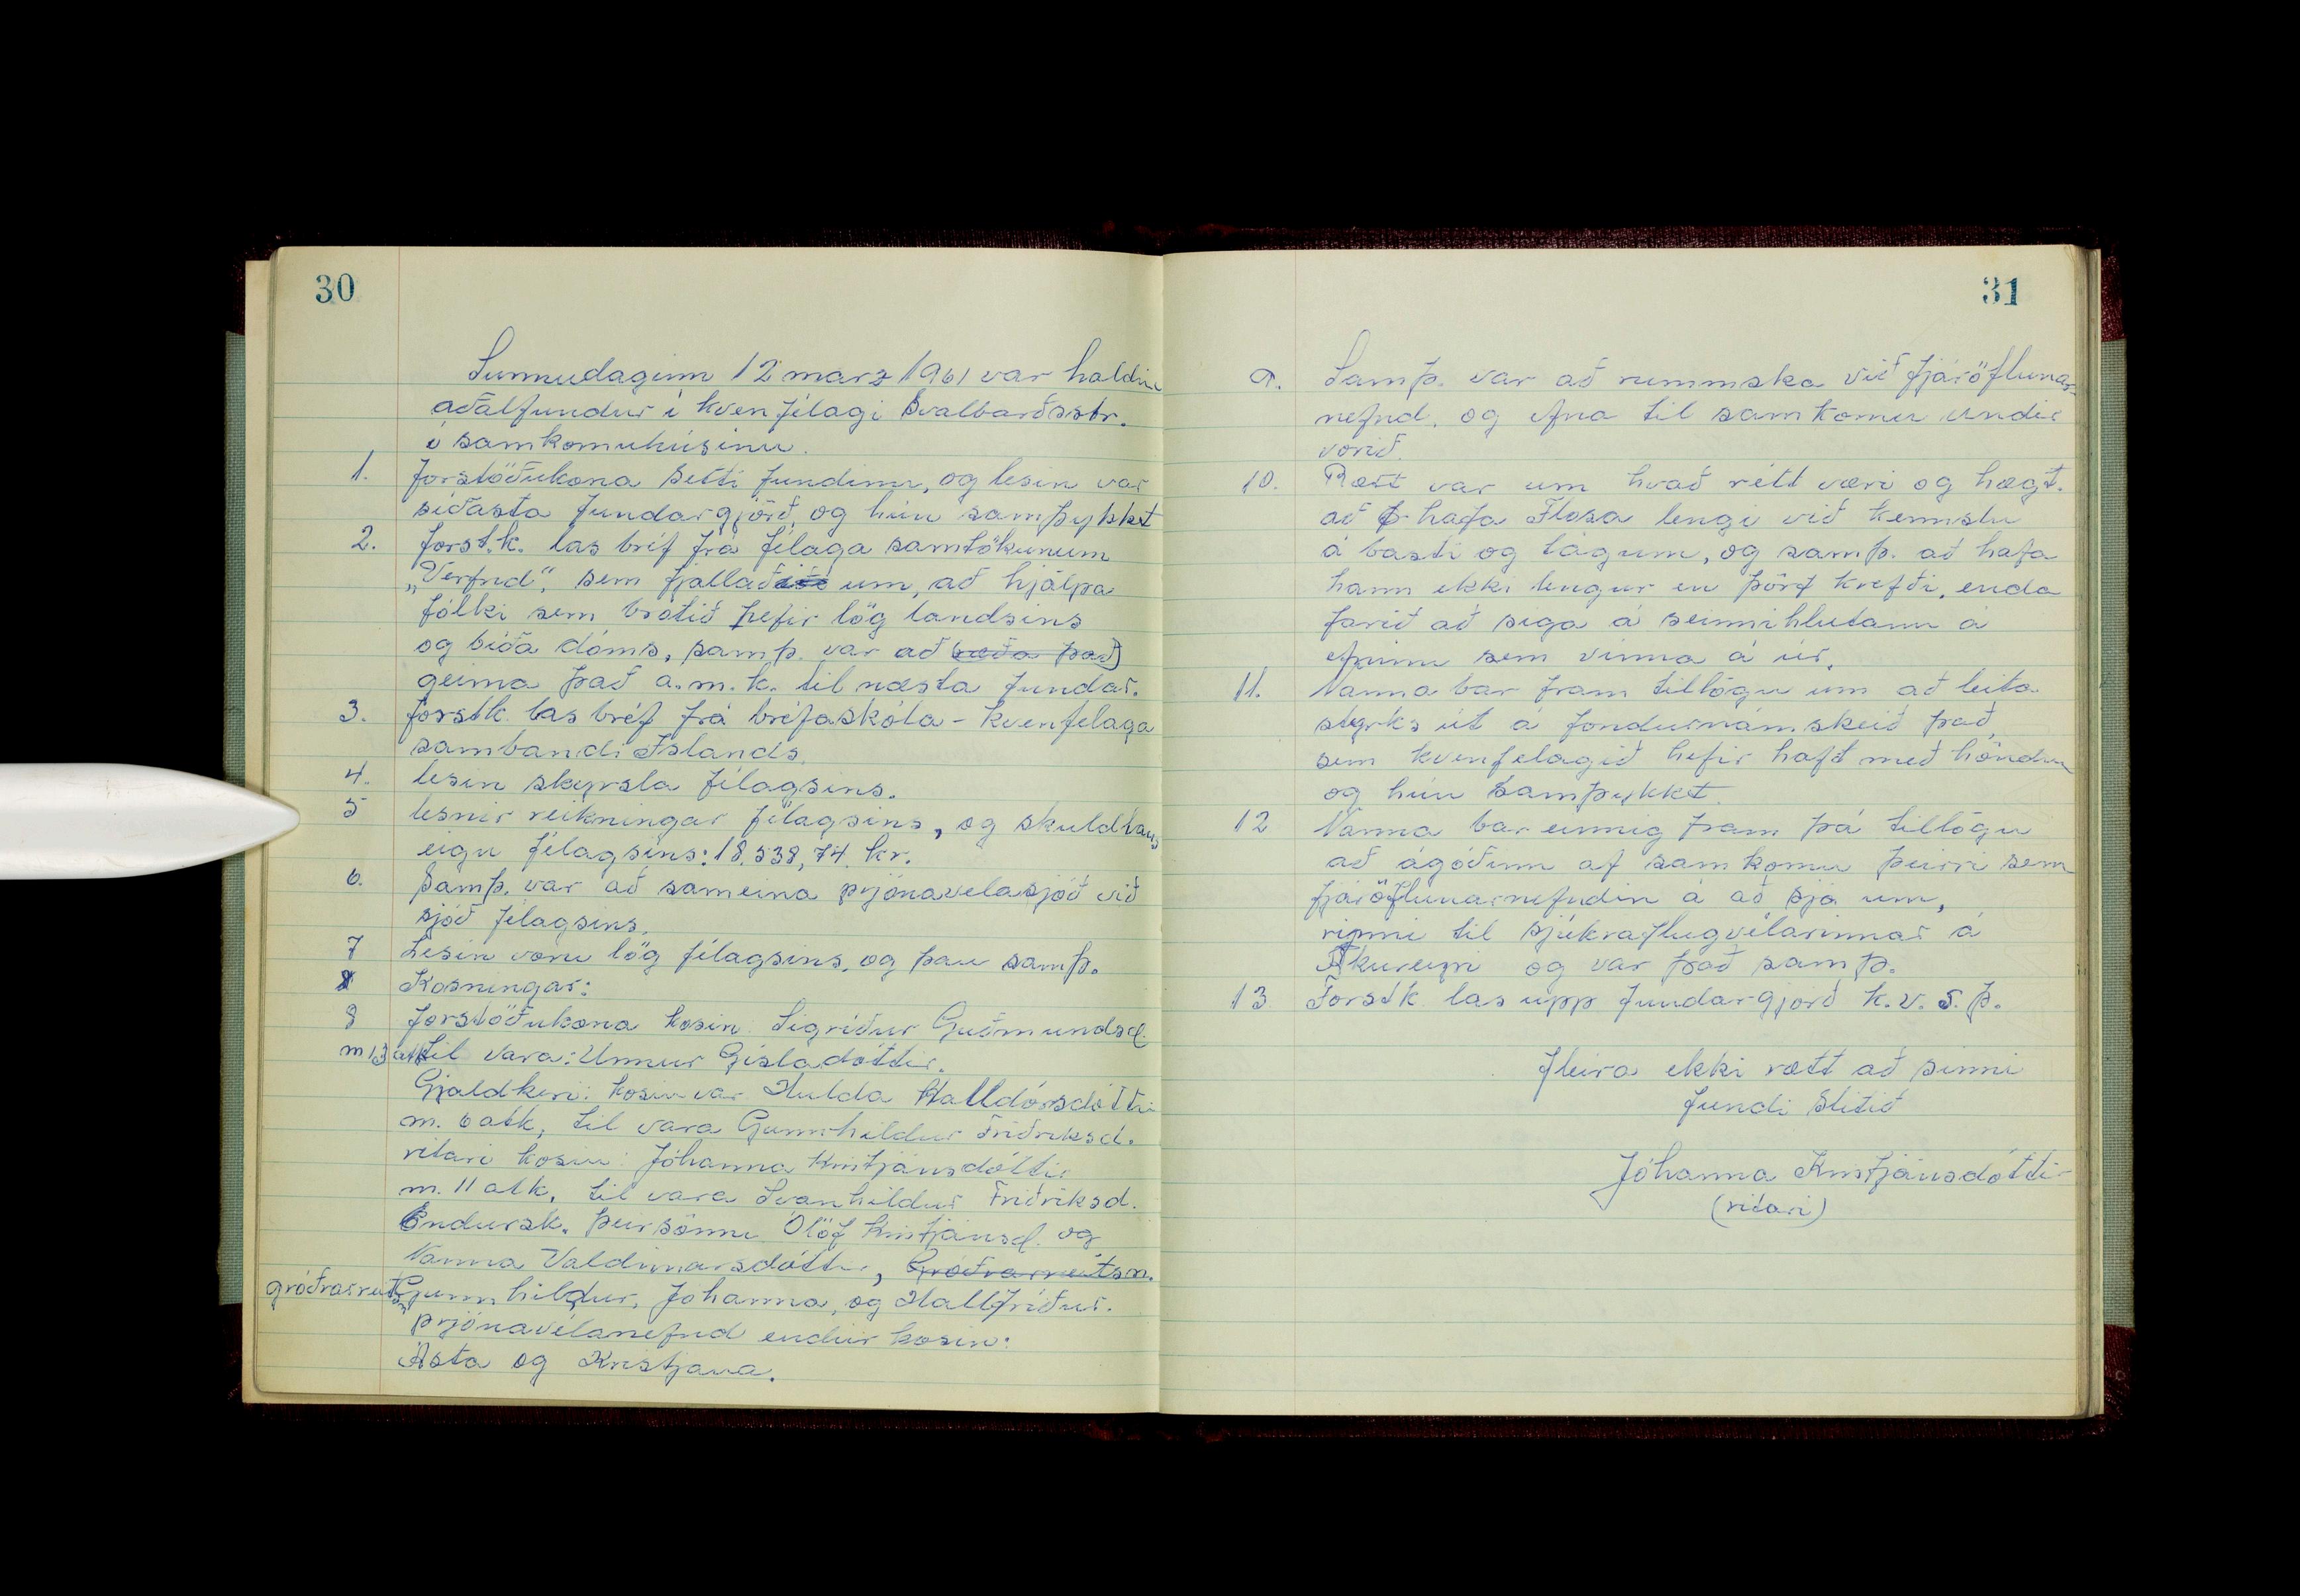 30
Sunnudaginn 12 marz 1961 var haldin
aðalfundur í kvenfélagi Svalbarðsstr.
í samkomuhúsinu.
1. forstöðukona setti fundinn, og lesin var
síðasta fundargjörð, og hún samþykkt
2. forst.k. las bréf frá félaga samtökunum
„Vernd", sem fjallaði um, að hjálpa
fólki sem brotið hefir lög landsins
og bíða dóms, samþ. var að ræða það
geima það a.m.k. til næsta fundar.
3. forstk. las bréf frá bréfaskóla - kvenfelaga
sambandi Islands.
4. lesin skyrsla félagsins.
5 lesnir reikningar félagsins, og skuldlaus
eign félagsins: 18.538,74 kr.
6. Samþ. var að sameina prjónavelasjóð við
sjóð félagsins.
7 Lesin voru lög félagsins, og þau samþ.
8 Kosningar:
8 forstöðukona kosin Sigríður Guðmundsd.
m 13 atk til vara: Unnur Gísladóttir.
Gjaldkeri: kosin var Hulda Halldórsdóttir
m. 6 atk, til vara Gunnhildur Friðriksd.
ritari kosin: Jóhanna Kristjánsdóttir
m. 11 atk, til vara Svanhildur Friðriksd.
Endursk. þeir sömu Ólöf Kristjánsd. og
Nanna Valdimarsdóttir, Gróðrareitsn.
gróðrarreitsn Gunnhildur, Jóhanna, og Hallfríður.
prjónavélanefnd endur kosin:
Ásta og Kristjana.
31
9. Samþ. var að rummska við fjáröflunar-
nefnd. og efna til samkomu undir
vorið.
10. Rætt var um hvað rétt væri og hægt.
að hafa Flosa lengi við kennslu
á basti og tágum, og samþ. að hafa
hann ekki lengur en þörf krefði, enda
farið að síga á seinnihlutann á
efninu sem vinna á úr.
11. Nanna bar fram tillögu um að leita
styrks út á föndurnámskeið það,
sem kvenfelagið hefir haft með höndum
og hún samþykkt.
12 Nanna bar einnig fram þá tillögu
að ágóðinn af samkomu þeirri sem
fjáröflunarnefndin á að sjá um,
rynni til sjúkraflugvélarinnar á
Akureyri og var það samþ.
13. Forstk. las upp fundargjörð K.v.S.Þ.
fleira ekki rætt að sinni
fundi slitið
Jóhanna Kristjánsdóttir
(ritari)